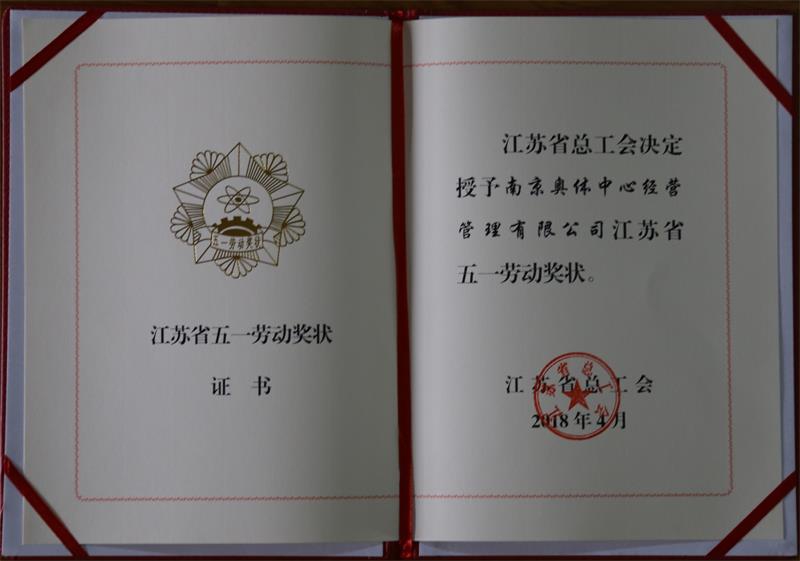 五一劳动奖状
江苏省五一劳动奖状
证 书
江苏省总工会决定
授予南京奥体中心经营
管理有限公司江苏省
五一劳动奖状。
江苏省总工会
2018年4月
江苏省总工会